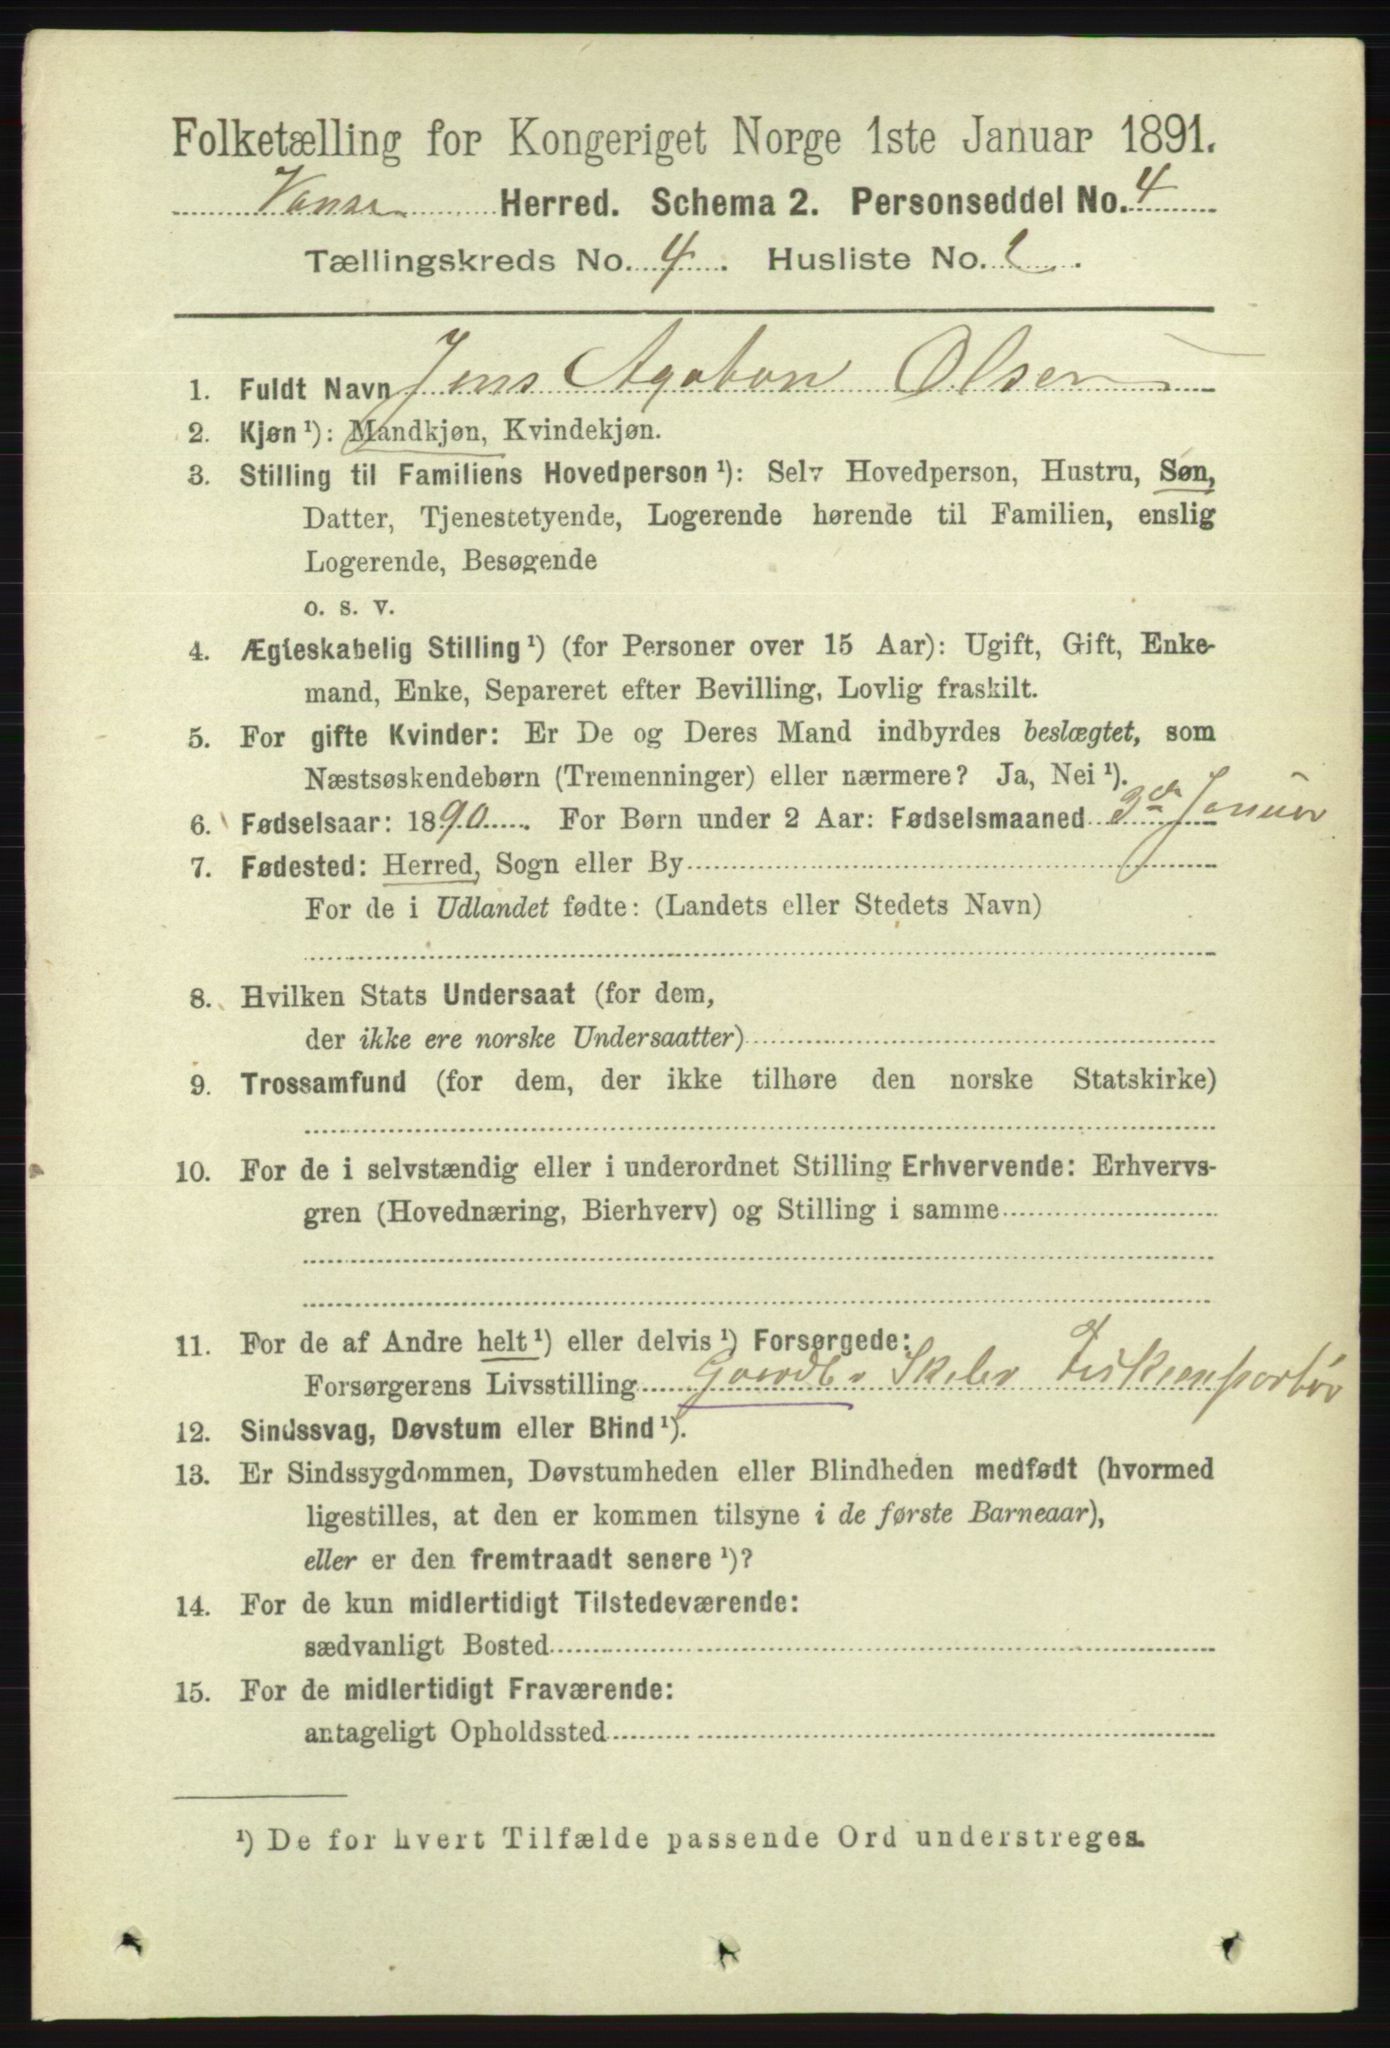 Folketælling for Kongeriget Norge 1ste Januar 1891.
Vanse Herred. Schema 2. Personseddel No. 4
Tællingskreds No. 4. Husliste No. 2.
1. Fuldt Navn Jens Agabon Olsen
2. Kjøn ¹): Mandkjøn, Kvindekjøn.
3. Stilling til Familiens Hovedperson ¹): Selv Hovedperson, Hustru, Søn,
Datter, Tjenestetyende, Logerende hørende til Familien, enslig
Logerende, Besøgende
o. s. v.
4. Ægteskabelig Stilling ¹) (for Personer over 15 Aar): Ugift, Gift, Enke-
mand, Enke, Separeret efter Bevilling, Lovlig fraskilt.
5. For gifte Kvinder: Er De og Deres Mand indbyrdes beslægtet, som
Næstsøskendebørn (Tremenninger) eller nærmere? Ja, Nei ¹).
6. Fødselsaar: 1890. For Børn under 2 Aar: Fødselsmaaned 3de Januar
7. Fødested: Herred, Sogn eller By
For de i Udlandet fødte: (Landets eller Stedets Navn)
8. Hvilken Stats Undersaat (for dem,
der ikke ere norske Undersaatter)
9. Trossamfund (for dem, der ikke tilhøre den norske Statskirke)
10. For de i selvstændig eller i underordnet Stilling Erhvervende: Erhvervs-
gren (Hovednæring, Bierhverv) og Stilling i samme
11. For de af Andre helt ¹) eller delvis ¹) Forsørgede:
Forsørgerens Livsstilling Gaardb. Fiskeexportør
12. Sindssvag, Døvstum eller Blind ¹).
13. Er Sindssygdommen, Døvstumheden eller Blindheden medfødt (hvormed
ligestilles, at den er kommen tilsyne i de første Barneaar),
eller er den fremtraadt senere ¹)?
14. For de kun midlertidigt Tilstedeværende:
sædvanligt Bosted
15. For de midlertidigt Fraværende:
antageligt Opholdssted
¹) De for hvert Tilfælde passende Ord understreges.